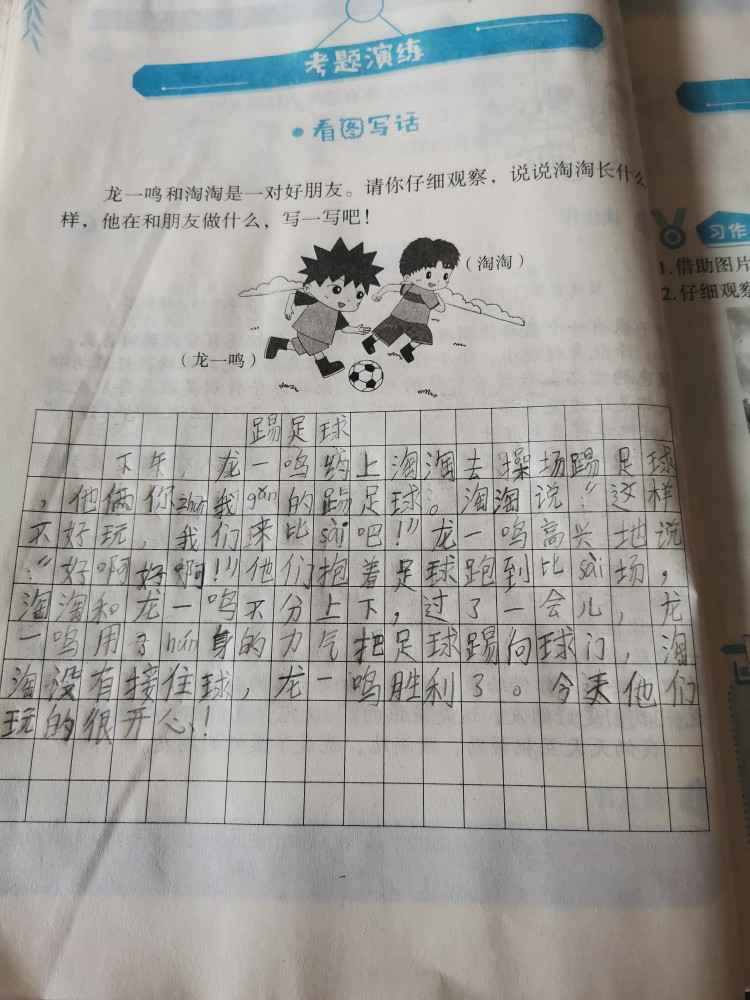 考题演练
看图写话
龙一鸣和淘淘是一对好朋友。请你仔细观察，说说淘淘长什么
样，他在和朋友做什么，写一写吧！
（淘淘）
（龙一鸣）
踢足球
下午，龙一鸣 上淘淘去操场踢足球
，他俩你zhuī我gǎn的踢足球。淘淘说：“这样
不好玩，我们来比sài吧！”龙一鸣高兴地说
：“好啊好啊！”他们抱着足球跑到比sài场，
淘淘和龙一鸣不分上下，过了一会儿，龙
一鸣用了hún身的力气把足球踢向球门，淘
淘没有接住球，龙一鸣胜利了。今天他们
玩的很开心！
习作
1.借助图片
2.仔细观察